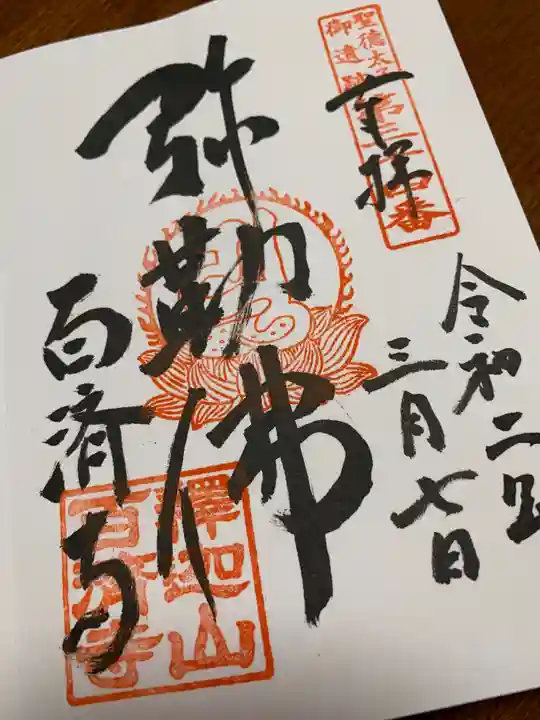 聖徳太子
御遺跡第三十四番
奉拝
令和二年
三月七日
弥勒佛
百済寺
釋迦山
百済寺